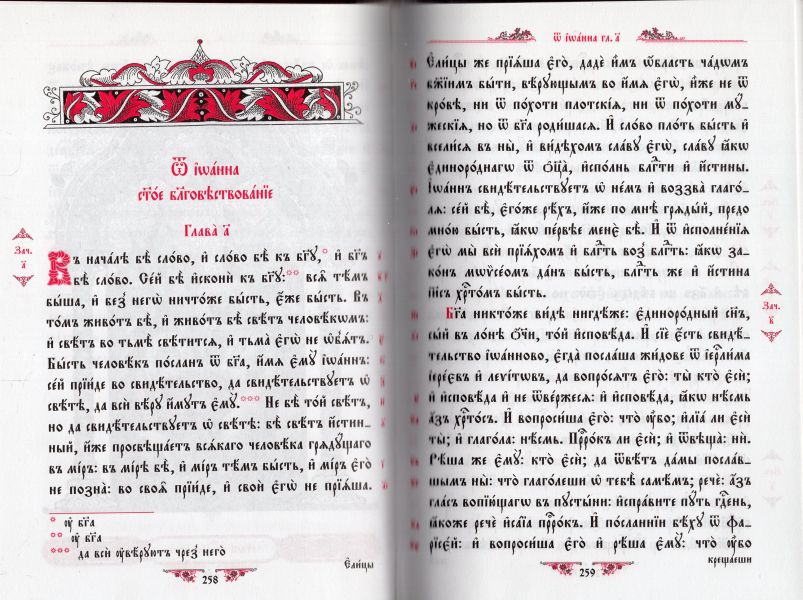 Ѿ і҆ѡа́нна
ст҃о́е бл҃говѣствова́нїе
Глава̀ а҃
Въ нача́лѣ бѣ̀ сло́во, и҆ сло́во бѣ̀ къ бг҃ꙋ,* и҆ бг҃ъ
бѣ̀ сло́во. Се́й бѣ̀ и҆сконѝ къ бг҃ꙋ:** всѧ̑ тѣ́мъ
бы́ша, и҆ без̾ негѡ̀ ничто́же бы́сть, є҆́же бы́сть. Въ
то́мъ живо́тъ бѣ̀, и҆ живо́тъ бѣ̀ свѣ́тъ человѣ́кѡмъ:
и҆ свѣ́тъ во тьмѣ̀ свѣ́титсѧ, и҆ тьма̀ є҆гѡ̀ не ѡ҆б̾ѧ́тъ.
Бы́сть человѣ́къ по́сланъ ѿ бг҃а, и҆́мѧ є҆мꙋ̀ і҆ѡа́ннъ:
се́й прїи́де во свидѣ́тельство, да свидѣ́тельствꙋетъ ѡ҆
свѣ́тѣ, да всѝ вѣ́рꙋ и҆́мꙋтъ є҆мꙋ̀.*** Не бѣ̀ то́й свѣ́тъ,
но да свидѣ́тельствꙋетъ ѡ҆ свѣ́тѣ: бѣ̀ свѣ́тъ и҆́стин-
ный, и҆́же просвѣща́етъ всѧ́каго человѣ́ка грѧдꙋ́щаго
въ мі́ръ: въ мі́рѣ бѣ̀, и҆ мі́ръ тѣ́мъ бы́сть, и҆ мі́ръ є҆гѡ̀
не позна̀: во своѧ̑ прїи́де, и҆ своѝ є҆гѡ̀ не прїѧ́ша.
Зач.
а҃
* ᲂу҆ бг҃а
** ᲂу҆ бг҃а
*** да всѝ ᲂу҆вѣ́рꙋютъ чрез̾ него̀
Є҆ли́цы
258
Ѿ і҆ѡа́нна гл. а҃
Є҆ли́цы же прїѧ́ша є҆го̀, дадѐ и҆̀мъ ѡ҆́бласть ча́дѡмъ
бж҃їимъ бы́ти, вѣ́рꙋющымъ во и҆́мѧ є҆гѡ̀, и҆̀же не ѿ
кро́ве, ни ѿ по́хоти плотскі́ѧ, ни ѿ по́хоти мꙋ́-
жескїѧ, но ѿ бг҃а роди́шасѧ. И҆ сло́во пло́ть бы́сть и҆
всели́сѧ въ ны̀, и҆ ви́дѣхомъ сла́вꙋ є҆гѡ̀, сла́вꙋ ꙗ҆́кѡ
є҆диноро́днагѡ ѿ ѻ҆ц҃а̀, и҆спо́лнь бл҃гти и҆ и҆́стины.
І҆ѡа́ннъ свидѣ́тельствꙋетъ ѡ҆ не́мъ и҆ воззва̀ глаго́-
лѧ: се́й бѣ̀, є҆го́же рѣ́хъ, и҆́же по мнѣ̀ грѧды́й, предо
мно́ю бы́сть, ꙗ҆́кѡ пе́рвѣе менє̀ бѣ̀. И҆ ѿ и҆сполне́нїѧ
є҆гѡ̀ мы̀ всѝ прїѧ́хомъ и҆ бл҃гть воз̾ бл҃гть: ꙗ҆́кѡ за-
ко́нъ мѡѷсе́омъ да́нъ бы́сть, бл҃гть же и҆ и҆́стина
і҆и҃съ хрⷭ҇то́мъ бы́сть.
Бг҃а никто́же ви́дѣ нигдѣ́же: є҆диноро́дный сн҃ъ,
сы́й въ ло́нѣ ѻ҆́ч҃и, то́й и҆сповѣ́да. И҆ сїѐ є҆́сть свидѣ́-
тельство і҆ѡа́нново, є҆гда̀ посла́ша жи́дове ѿ і҆ерⷭ҇ли́ма
і҆ере́євъ и҆ леѵі́тѡвъ, да вопро́сѧтъ є҆го̀: ты̀ кто̀ є҆сѝ;
и҆ и҆сповѣ́да и҆ не ѿве́ржесѧ: и҆ и҆сповѣ́да, ꙗ҆́кѡ нѣ́смь
а҆́зъ хрⷭ҇то́съ. И҆ вопроси́ша є҆го̀: что̀ ᲂу҆̀бо; и҆лїа́ ли є҆сѝ
ты̀; и҆ глаго́ла: нѣ́смь. Прⷪ҇ро́къ ли є҆сѝ; и҆ ѿвѣща̀: нѝ.
Рѣ́ша же є҆мꙋ̀: кто̀ є҆сѝ; да ѿвѣ́тъ да́мы посла́в-
шымъ ны̀: что̀ глаго́леши ѡ҆ тебѣ̀ самѣ́мъ; речѐ: а҆́зъ
гла́съ вопїю́щагѡ въ пꙋсты́ни: и҆спра́вите пꙋ́ть гдⷭ҇ень,
ꙗ҆́коже речѐ и҆са́їа прⷪ҇ро́къ. И҆ по́сланнїи бѣ́хꙋ ѿ фа-
рїсє́й: и҆ вопроси́ша є҆го̀ и҆ рѣ́ша є҆мꙋ̀: что̀ ᲂу҆̀бо
Зач.
в҃
креща́еши
259